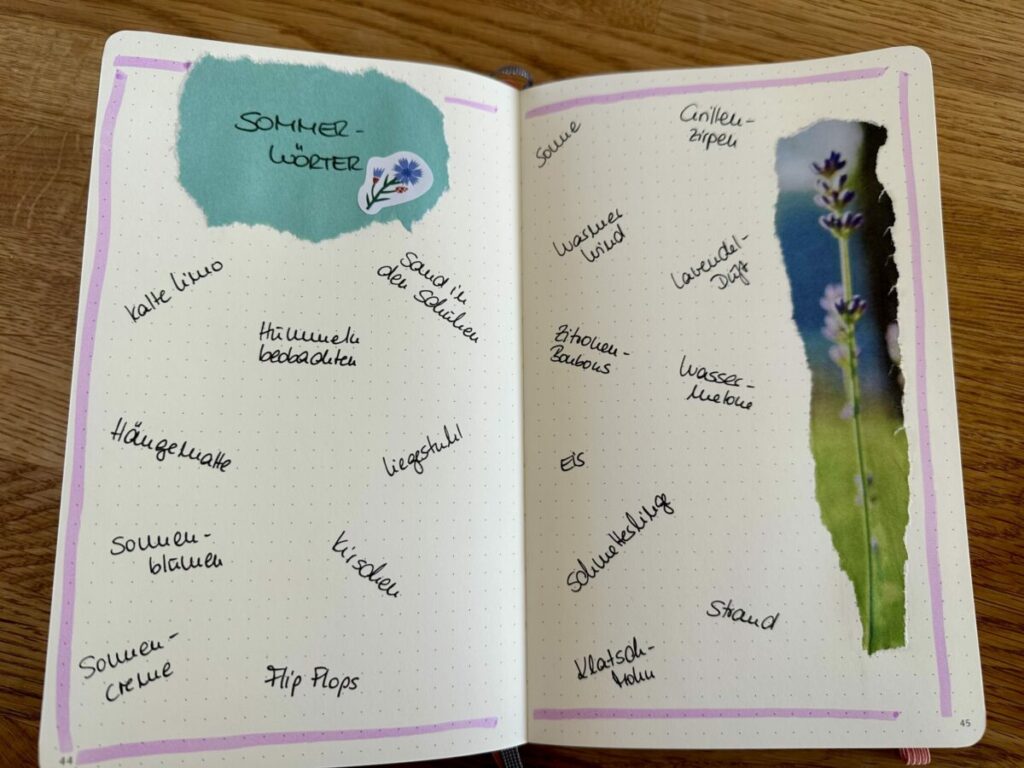 SOMMER-
WÖRTER
Kalte Limo
Sand in
den Schuhen
Hummeln
beobachten
Hängematte
Liegestuhl
Sonnen-
blumen
Kirschen
Sonnen-
creme
Flip Flops
44
Sonne
Grillen-
zirpen
Warmer
Wind
Lavendel-
Duft
Zitronen-
Bonbons
Wasser-
melone
Eis
Schmetterlinge
Strand
Klatsch-
mohn
45